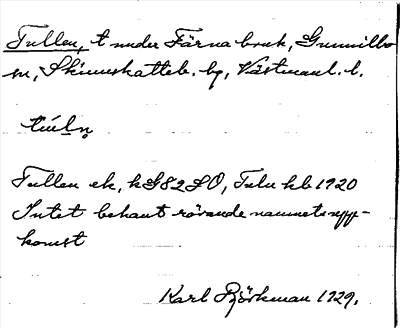 Tullen, t under Färna bruk, Gunnilbo
sn, Skinnskatteb. bg, Västmanl. l.
Tullen ek, kG82SO, Tulu hb 1920
Intet bekant rörande namnets upp-
komst
Karl Björkman 1929.